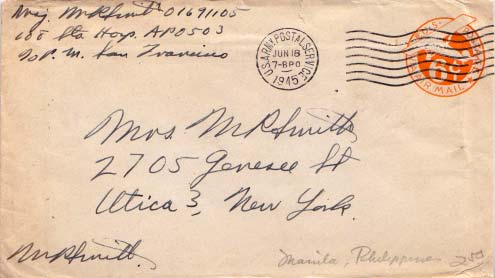 Maj. M R Smith 01691105
188 Sta. Hosp. APO 503
℅ P.M. San Francisco
U.S. ARMY POSTAL SERVICE
JUN 16
7-8PM
1945
6¢
AIR MAIL
Mrs. M R Smith
2705 Genesee St
Utica 3, New York.
M R Smith
Manila, Philippines